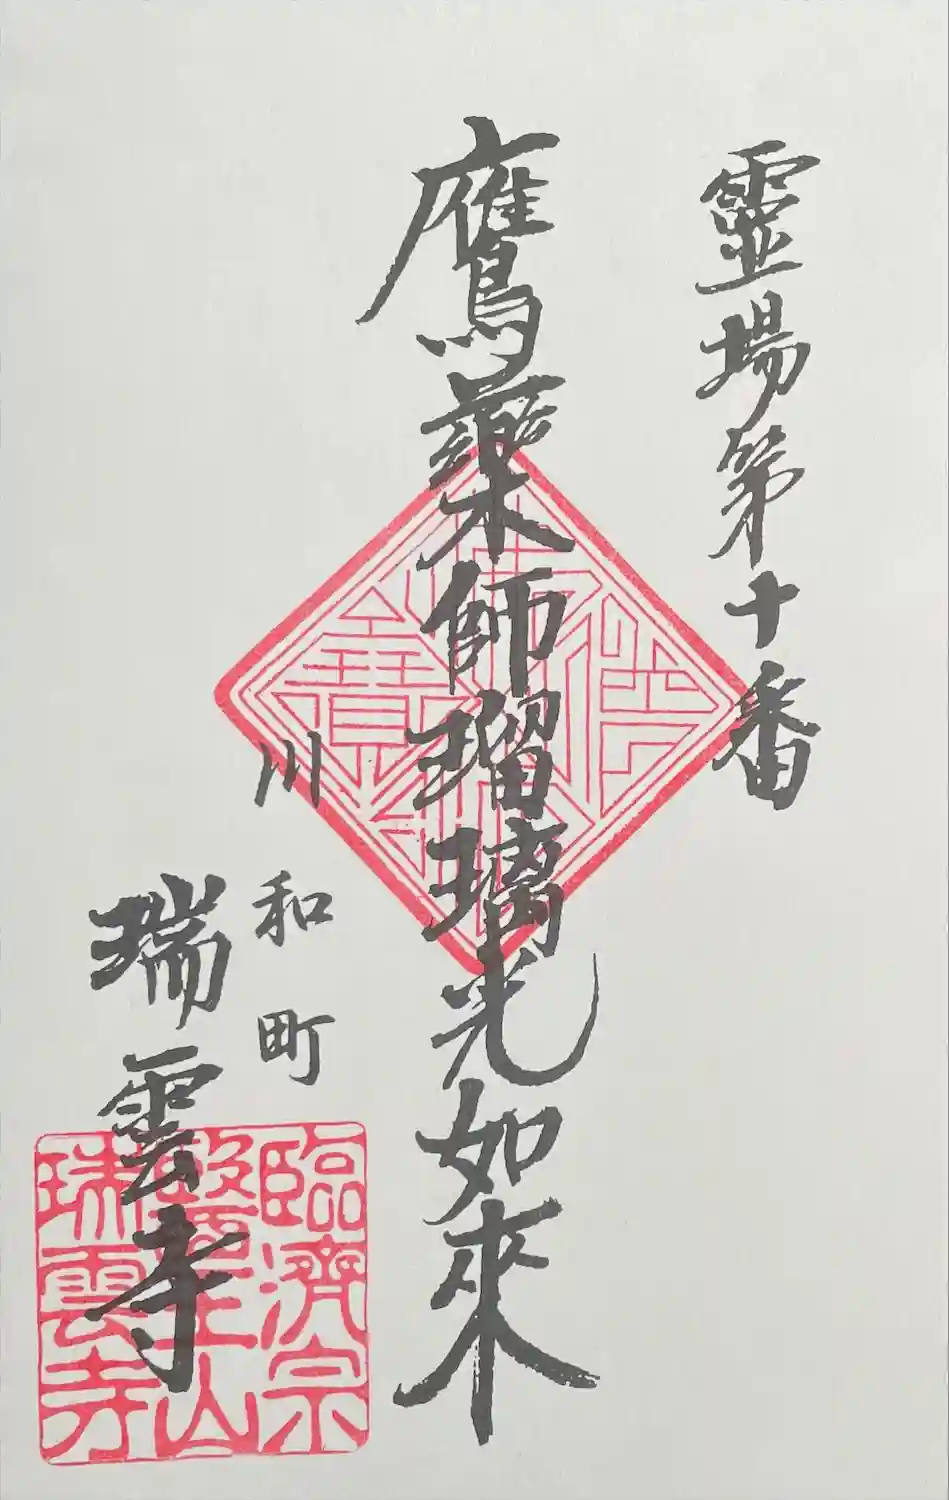 靈場第十番
鷹藥師瑠璃光如來
川和町
瑞雲寺
佛法僧寶
臨濟宗
醫王山
瑞雲寺